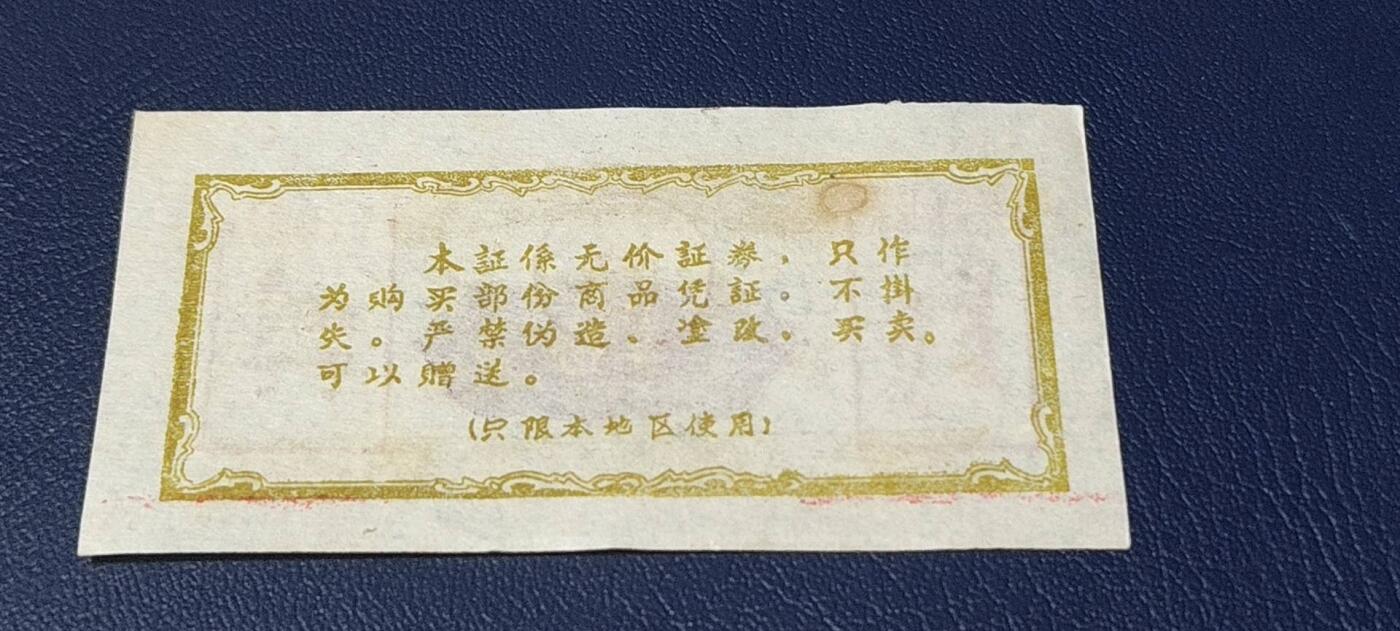 本証係无价証券，只作
为购买部份商品凭証。不掛
失。严禁伪造、塗改、买卖。
可以赠送。
(只限本地区使用)